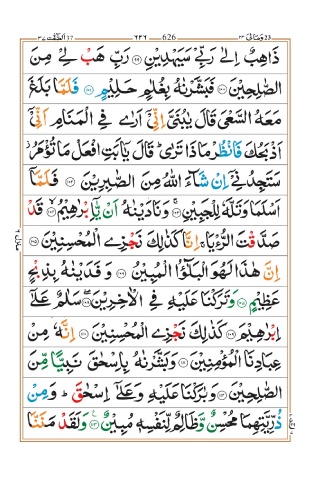 وَمَالِيَ ٢٣ ٦٢٦ 626 الصّٰفّٰت ٣٧
ذَاهِبٌ اِلٰى رَبِّىْ سَيَهْدِيْنِ ٩٩ رَبِّ هَبْ لِىْ مِنَ
الصّٰلِحِيْنَ ١٠٠ فَبَشَّرْنٰهُ بِغُلٰمٍ حَلِيْمٍ ١٠١ فَلَمَّا بَلَغَ
مَعَهُ السَّعْىَ قَالَ يٰبُنَىَّ اِنِّىْۤ اَرٰى فِى الْمَنَامِ اَنِّىْۤ
اَذْبَحُكَ فَانْظُرْ مَاذَا تَرٰىؕ قَالَ يٰۤاَبَتِ افْعَلْ مَا تُؤْمَرُؗ
سَتَجِدُنِىْۤ اِنْ شَآءَ اللّٰهُ مِنَ الصّٰبِرِيْنَ ١٠٢ فَلَمَّاۤ
اَسْلَمَا وَتَلَّهٗ لِلْجَبِيْنِ ١٠٣ وَنَادَيْنٰهُ اَنْ يّٰۤاِبْرٰهِيْمُ ١٠٤ قَدْ
صَدَّقْتَ الرُّءْيَا ۚ اِنَّا كَذٰلِكَ نَجْزِى الْمُحْسِنِيْنَ ١٠٥
اِنَّ هٰذَا لَهُوَ الْبَلٰٓؤُا الْمُبِيْنُ ١٠٦ وَفَدَيْنٰهُ بِذِبْحٍ
عَظِيْمٍ ١٠٧ وَتَرَكْنَا عَلَيْهِ فِى الْاٰخِرِيْنَ ١٠٨ سَلٰمٌ عَلٰٓى
اِبْرٰهِيْمَ ١٠٩ كَذٰلِكَ نَجْزِى الْمُحْسِنِيْنَ ١١٠ اِنَّهٗ مِنْ
عِبَادِنَا الْمُؤْمِنِيْنَ ١١١ وَبَشَّرْنٰهُ بِاِسْحٰقَ نَبِيًّا مِّنَ
الصّٰلِحِيْنَ ١١٢ وَبٰرَكْنَا عَلَيْهِ وَعَلٰٓى اِسْحٰقَؕ وَمِنْ
ذُرِّيَّتِهِمَا مُحْسِنٌ وَّظَالِمٌ لِّنَفْسِهٖ مُبِيْنٌ ١١٣ وَلَقَدْ مَنَنَّا